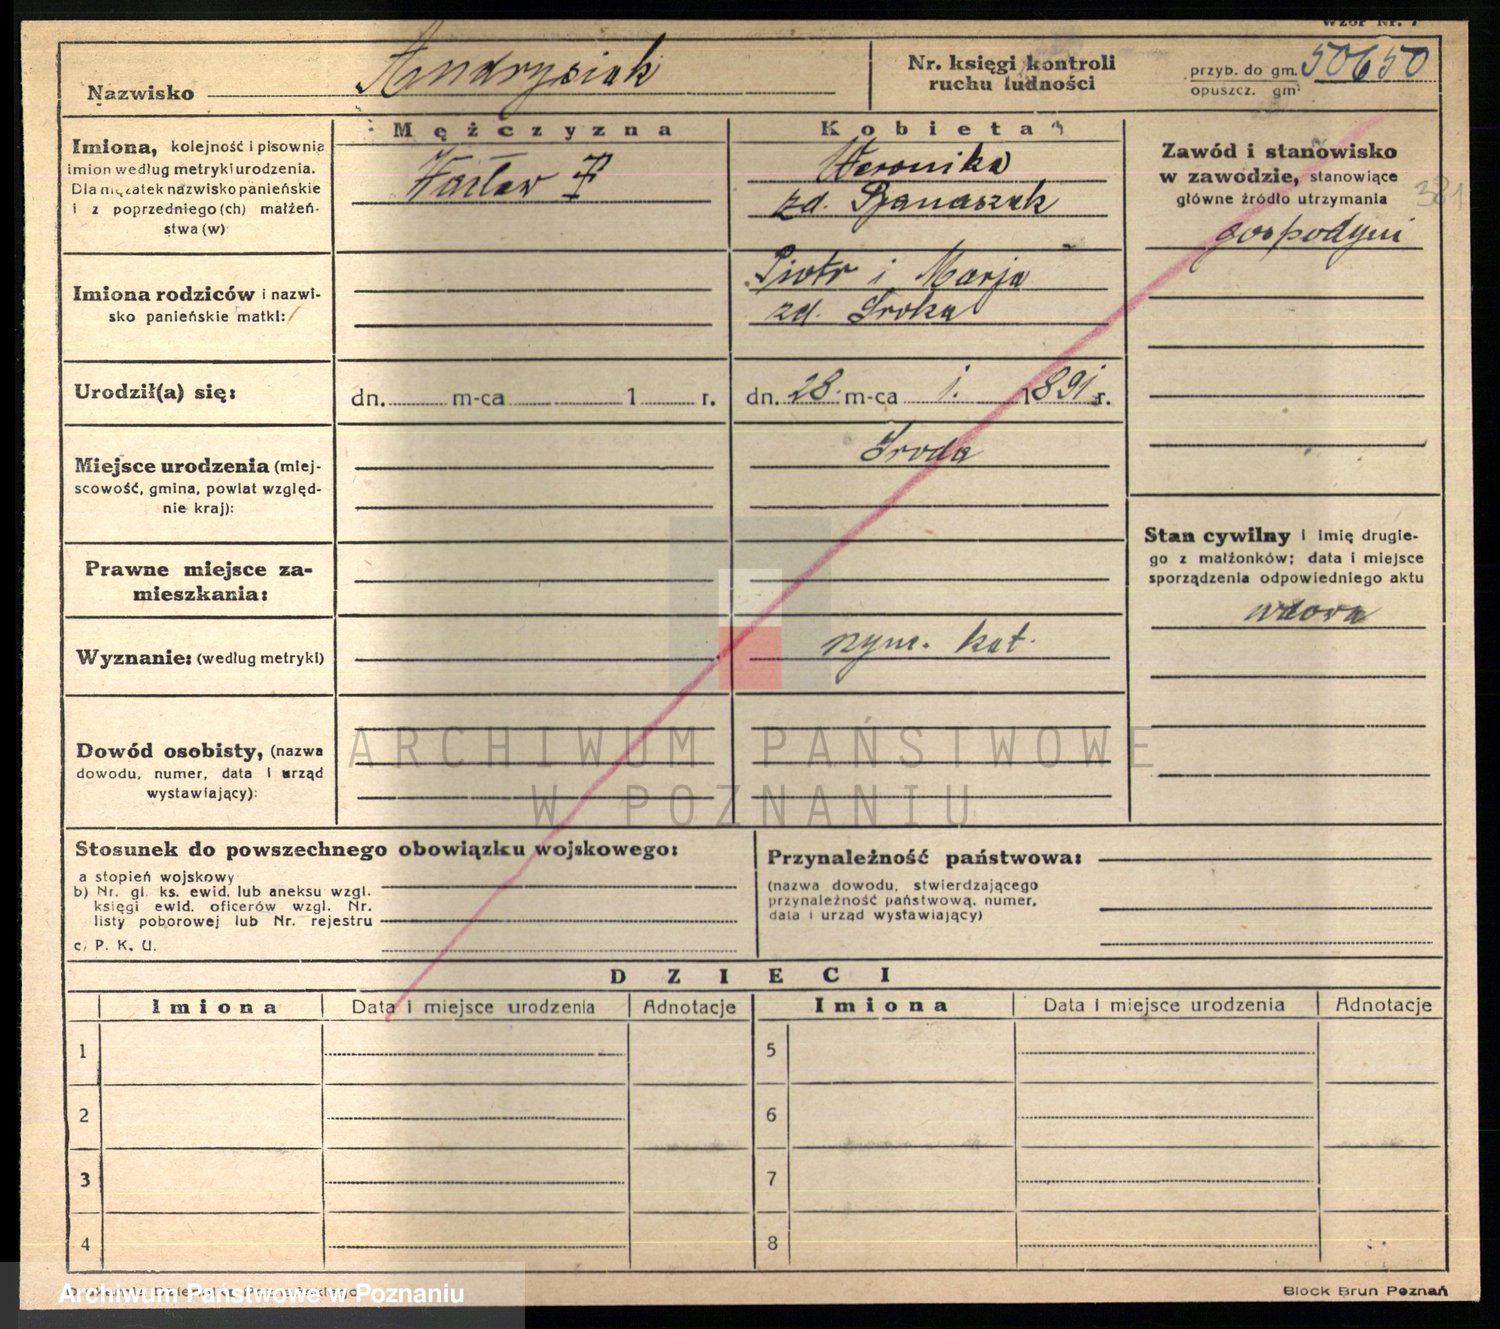 Wzór Nr. 7
Nazwisko Andrzysiak
Nr. księgi kontroli
ruchu ludności
przyb. do gm. 50650
opuszcz. gm.
Mężczyzna
Kobieta
Imiona, kolejność i pisownia
imion według metryki urodzenia.
Dla mężatek nazwisko panieńskie
i z poprzedniego (ch) małżeń-
stwa (w)
Wacław
Weronika
zd. Banaszak
Zawód i stanowisko
w zawodzie, stanowiące
główne źródło utrzymania
381
gospodyni
Imiona rodziców i nazwi-
sko panieńskie matki:
Piotr i Marja
zd. Sroka
Urodził(a) się:
dn. m-ca 1 r.
dn. 28. m-ca 1. 1891 r.
Miejsce urodzenia (miej-
scowość, gmina, powiat względ-
nie kraj):
Sroda
Stan cywilny i imię drugie-
go z małżonków; data i miejsce
sporządzenia odpowiedniego aktu
wdowa
Prawne miejsce za-
mieszkania:
Wyznanie: (według metryki)
rzym. kat.
Dowód osobisty, (nazwa
dowodu, numer, data i urząd
wystawiający):
ARCHIWUM PAŃSTWOWE
W POZNANIU
Stosunek do powszechnego obowiązku wojskowego:
a stopień wojskowy
b) Nr. gl. ks. ewid. lub aneksu wzgl.
księgi ewid. oficerów wzgl. Nr.
listy poborowej lub Nr. rejestru
c) P. K. U.
Przynależność państwowa:
(nazwa dowodu, stwierdzającego
przynależność państwową, numer,
data i urząd wystawiający)
DZIECI
Imiona Data i miejsce urodzenia Adnotacje Imiona Data i miejsce urodzenia Adnotacje
1 5
2 6
3 7
4 8
Archiwum Państwowe w Poznaniu
Block Brun Poznań